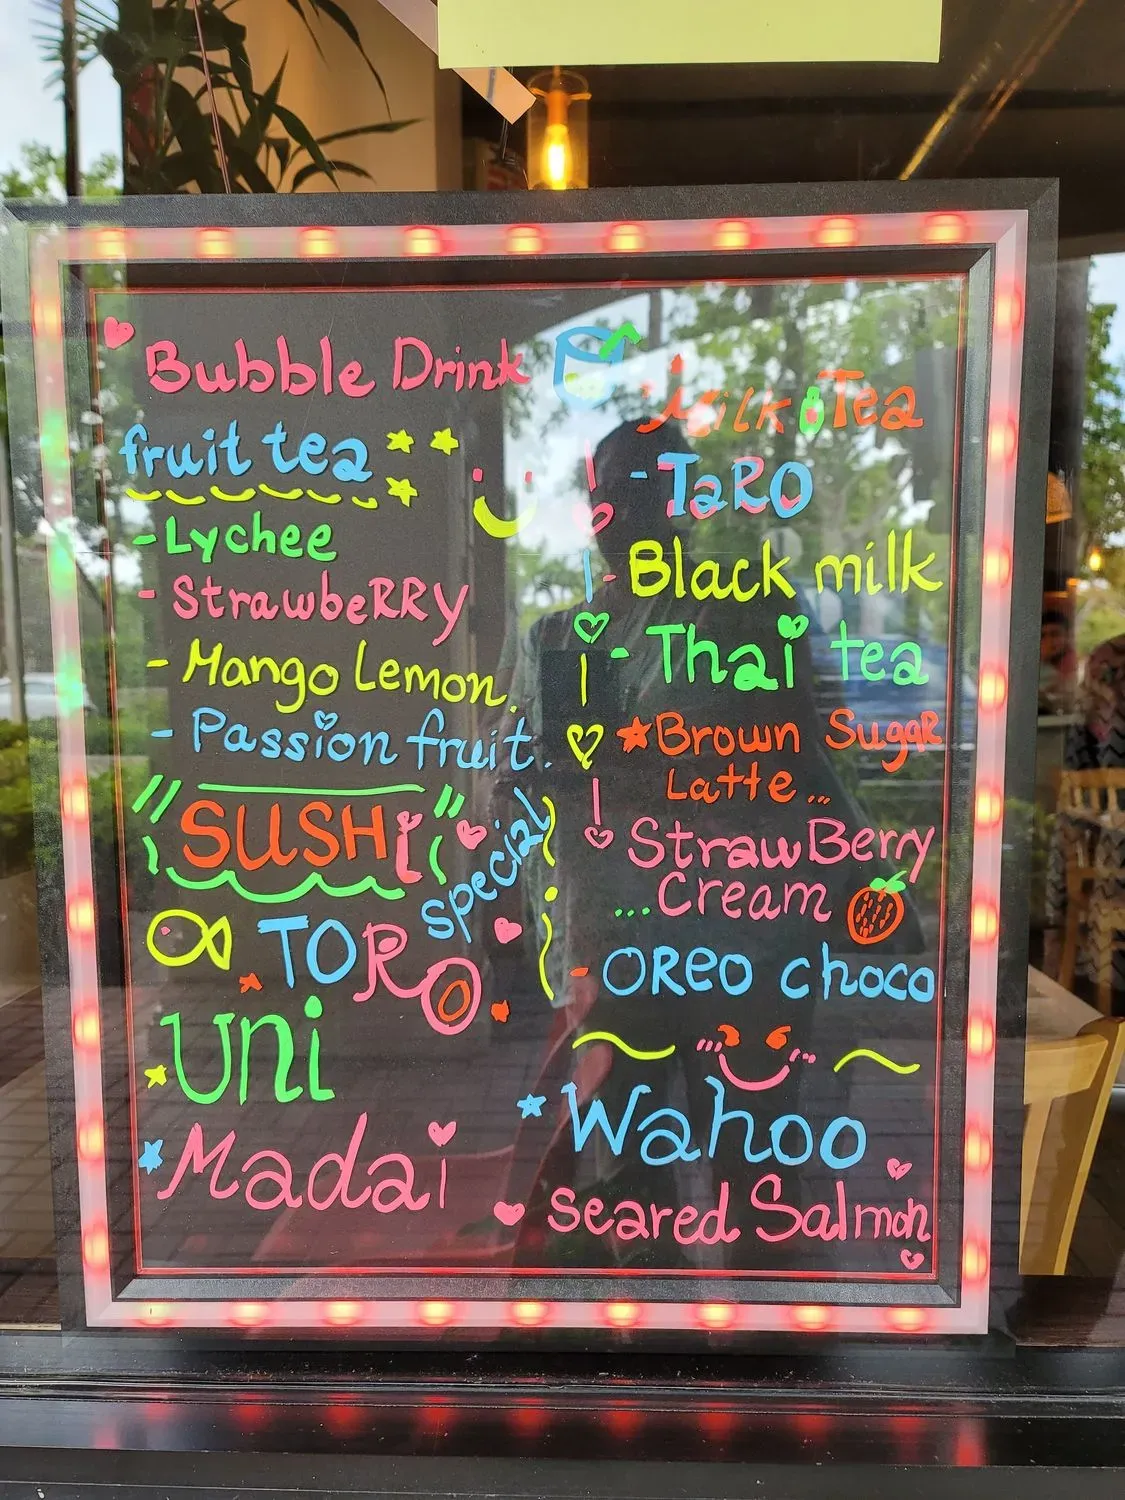 Bubble Drink
fruit tea
- Lychee
- StrawbeRRy
- Mango Lemon.
- Passion fruit.
Milk Tea
- TaRO
- Black milk
- Thai tea
Brown SugaR
Latte...
StrawBerry
...Cream
- OREO choco
SUSHi
special
TORO
Uni
Madai
Wahoo
seared Salmon